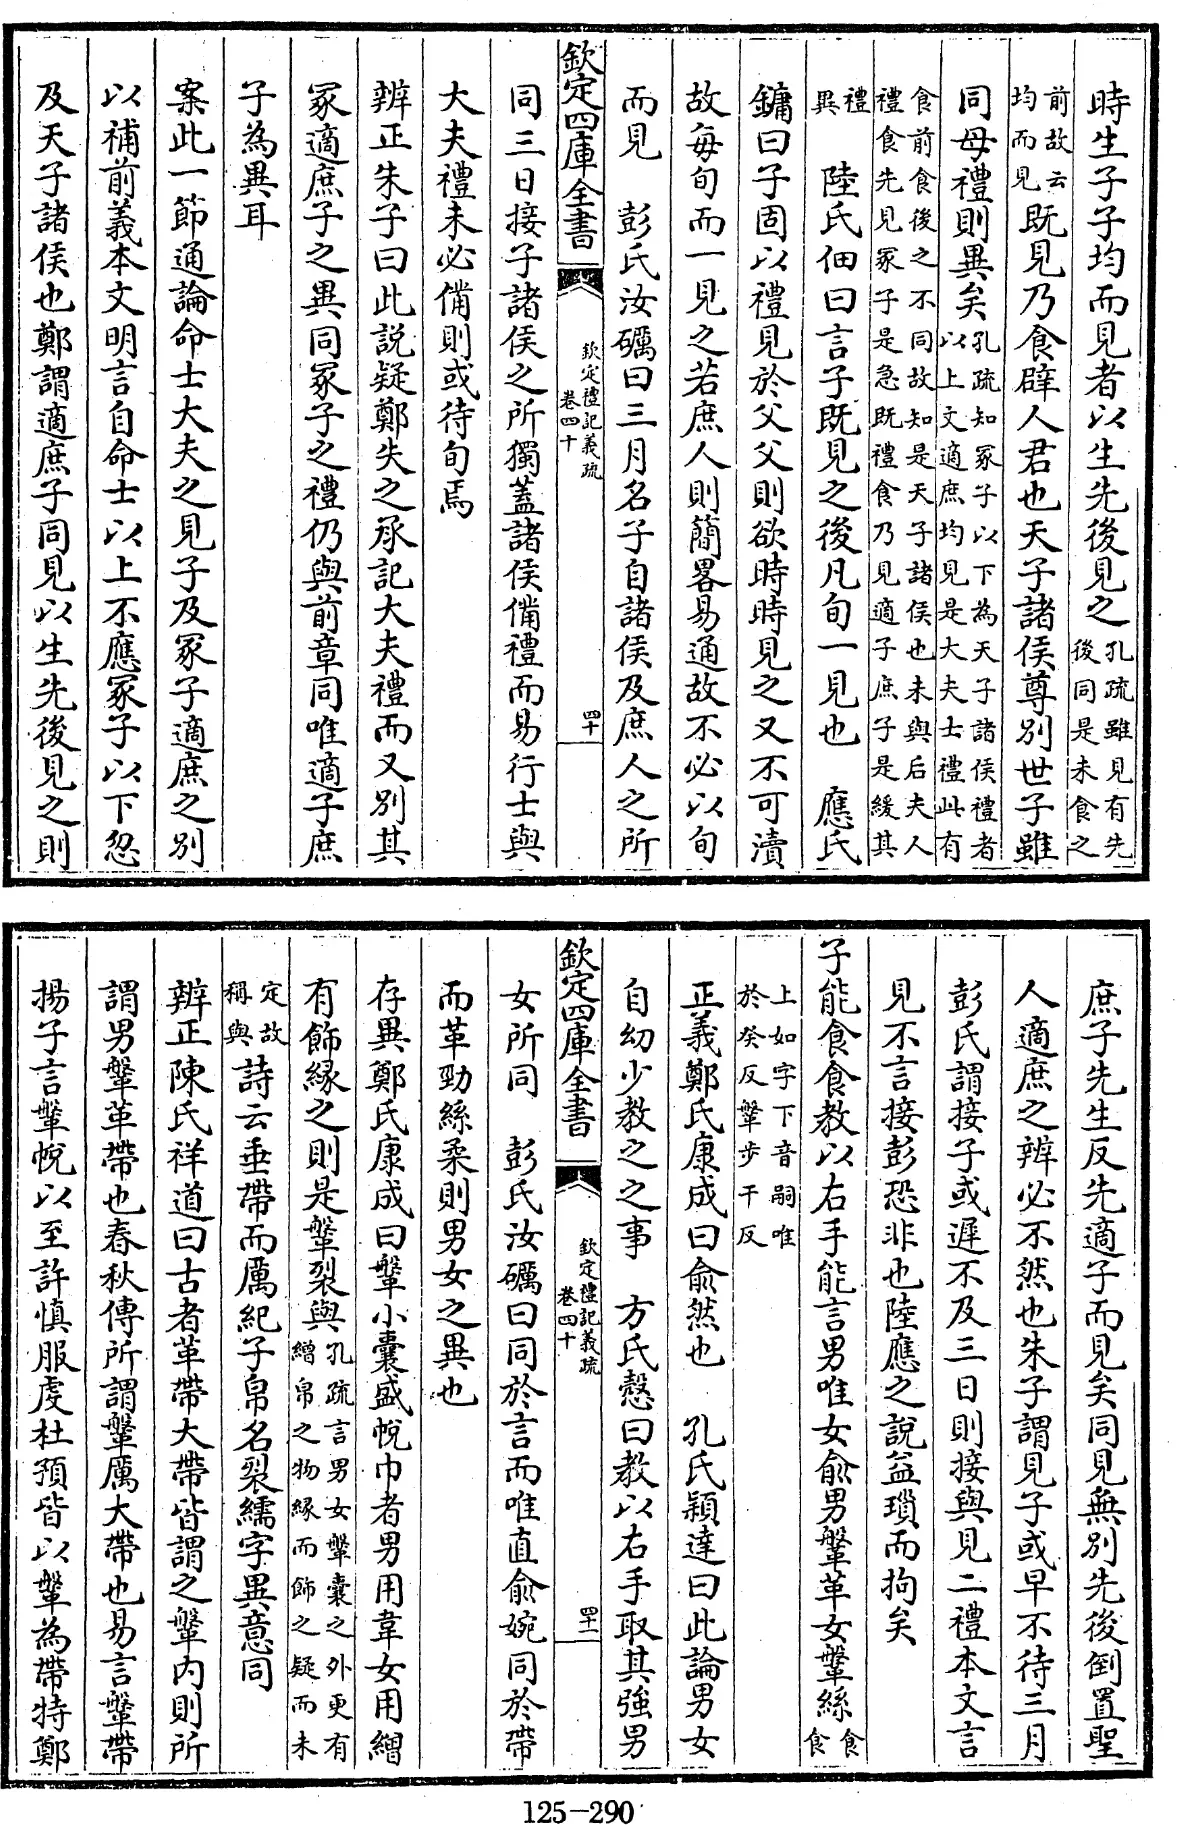 時生子子均而見者以生先後見之孔疏雖見有先後同是未食之
前故云均而見既見乃食辟人君也天子諸侯尊別世子雖
同母禮則異矣孔疏知冢子以下為天子諸侯禮者以上文適庶均見是大夫士禮此有
食前食後之不同故知是天子諸侯也未與后夫人禮食先見冢子是急既禮食乃見適子庶子是緩其
禮異 陸氏佃曰言子既見之後凡旬一見也 應氏
鏞曰子固以禮見於父父則欲時時見之又不可瀆
故每旬而一見之若庶人則簡畧易通故不必以旬
而見 彭氏汝礪曰三月名子自諸侯及庶人之所
欽定四庫全書 欽定禮記義疏 卷四十 四十
同三日接子諸侯之所獨蓋諸侯備禮而易行士與
大夫禮未必備則或待旬焉
辨正朱子曰此說疑鄭失之承記大夫禮而又別其
冢適庶子之異同冢子之禮仍與前章同唯適子庶
子為異耳
案此一節通論命士大夫之見子及冢子適庶之別
以補前義本文明言自命士以上不應冢子以下忽
及天子諸侯也鄭謂適庶子同見以生先後見之則
庶子先生反先適子而見矣同見無別先後倒置聖
人適庶之辨必不然也朱子謂見子或早不待三月
彭氏謂接子或遲不及三日則接與見二禮本文言
見不言接彭恐非也陸應之說益瑣而拘矣
子能食食教以右手能言男唯女俞男鞶革女鞶絲食食
上如字下音嗣唯於癸反鞶步干反
正義鄭氏康成曰俞然也 孔氏穎達曰此論男女
自幼少教之之事 方氏慤曰教以右手取其強男
欽定四庫全書 欽定禮記義疏 卷四十 四十一
女所同 彭氏汝礪曰同於言而唯直俞婉同於帶
而革勁絲柔則男女之異也
存異鄭氏康成曰鞶小囊盛帨巾者男用韋女用繒
有飾緣之則是鞶裂與孔疏言男女鞶囊之外更有繒帛之物緣而飾之疑而未
定故稱與詩云垂帶而厲紀子帛名裂繻字異意同
辨正陳氏祥道曰古者革帶大帶皆謂之鞶内則所
謂男鞶革帶也春秋傳所謂鞶厲大帶也易言鞶帶
揚子言鞶帨以至許慎服虔杜預皆以鞶為帶特鄭
125-290